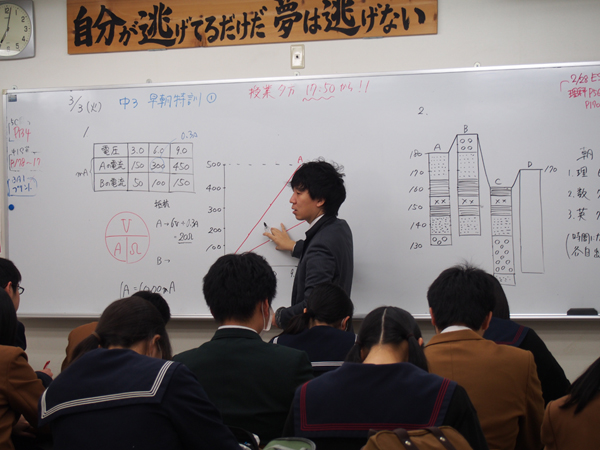 自分が逃げてるだけだ 夢は逃げない
3/3(火) 中3 早朝特訓①
授業夕方 17:50から!!
1
0.3A
電圧 3.0 6.0 9.0
mA
Aの電流 150 300 450
Bの電流 50 100 150
抵抗
A→6V÷0.3A
=20Ω
B→
V
A Ω
500
400
300
200
100
A
2.
A B C D
180
170
160
150
140
130
170
朝
1. 理
2. 数
3. 英